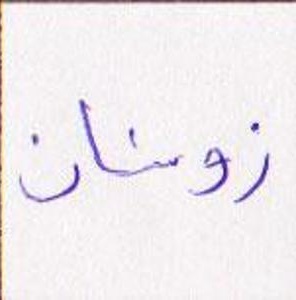 زوسنان